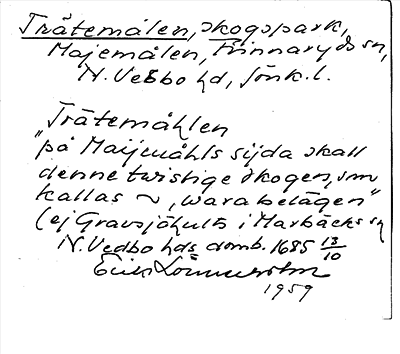 Trätemålen, skogspark,
Majemålen, Hinnaryds sn,
N. Vedbo hd, Jönk. l.
Trätemåhlen
"på Maijemåhls sijda skall
denne twistige skogen, som
kallas ~, wara belägen"
(ej Gravsjöhults i Marbäcks sn
N. Vedbo hds domb. 1685 13/10
Erik
1959